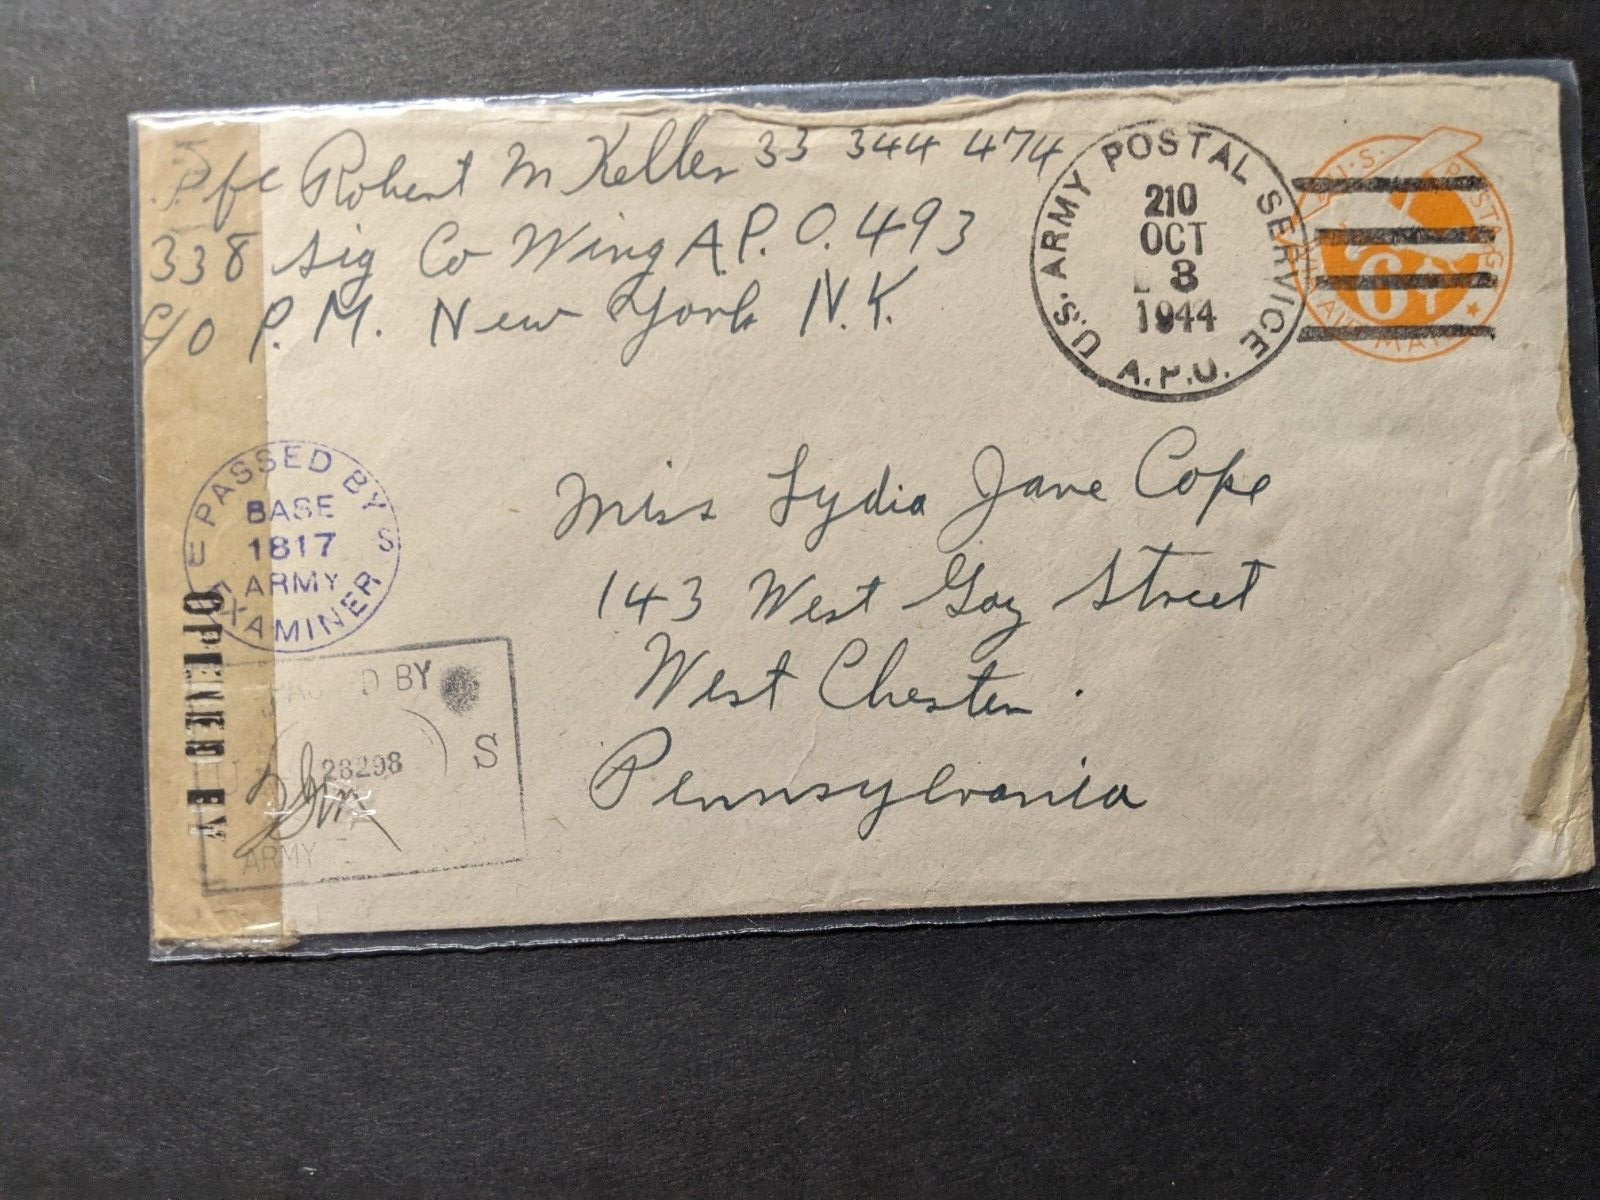 Pfc Robert M Keller 33 344 474
338 Sig Co Wing A.P.O. 493
c/o P.M. New York N.Y.
U.S. ARMY POSTAL SERVICE
210
OCT
8
1944
A.P.O.
U.S. POSTAGE
6¢
VIA AIR MAIL
Miss Lydia Jane Cope
143 West Gay Street
West Chester
Pennsylvania
PASSED BY
BASE
1817
ARMY
EXAMINER
U S
OPENED BY
PASSED BY
U S
23298
ARMY